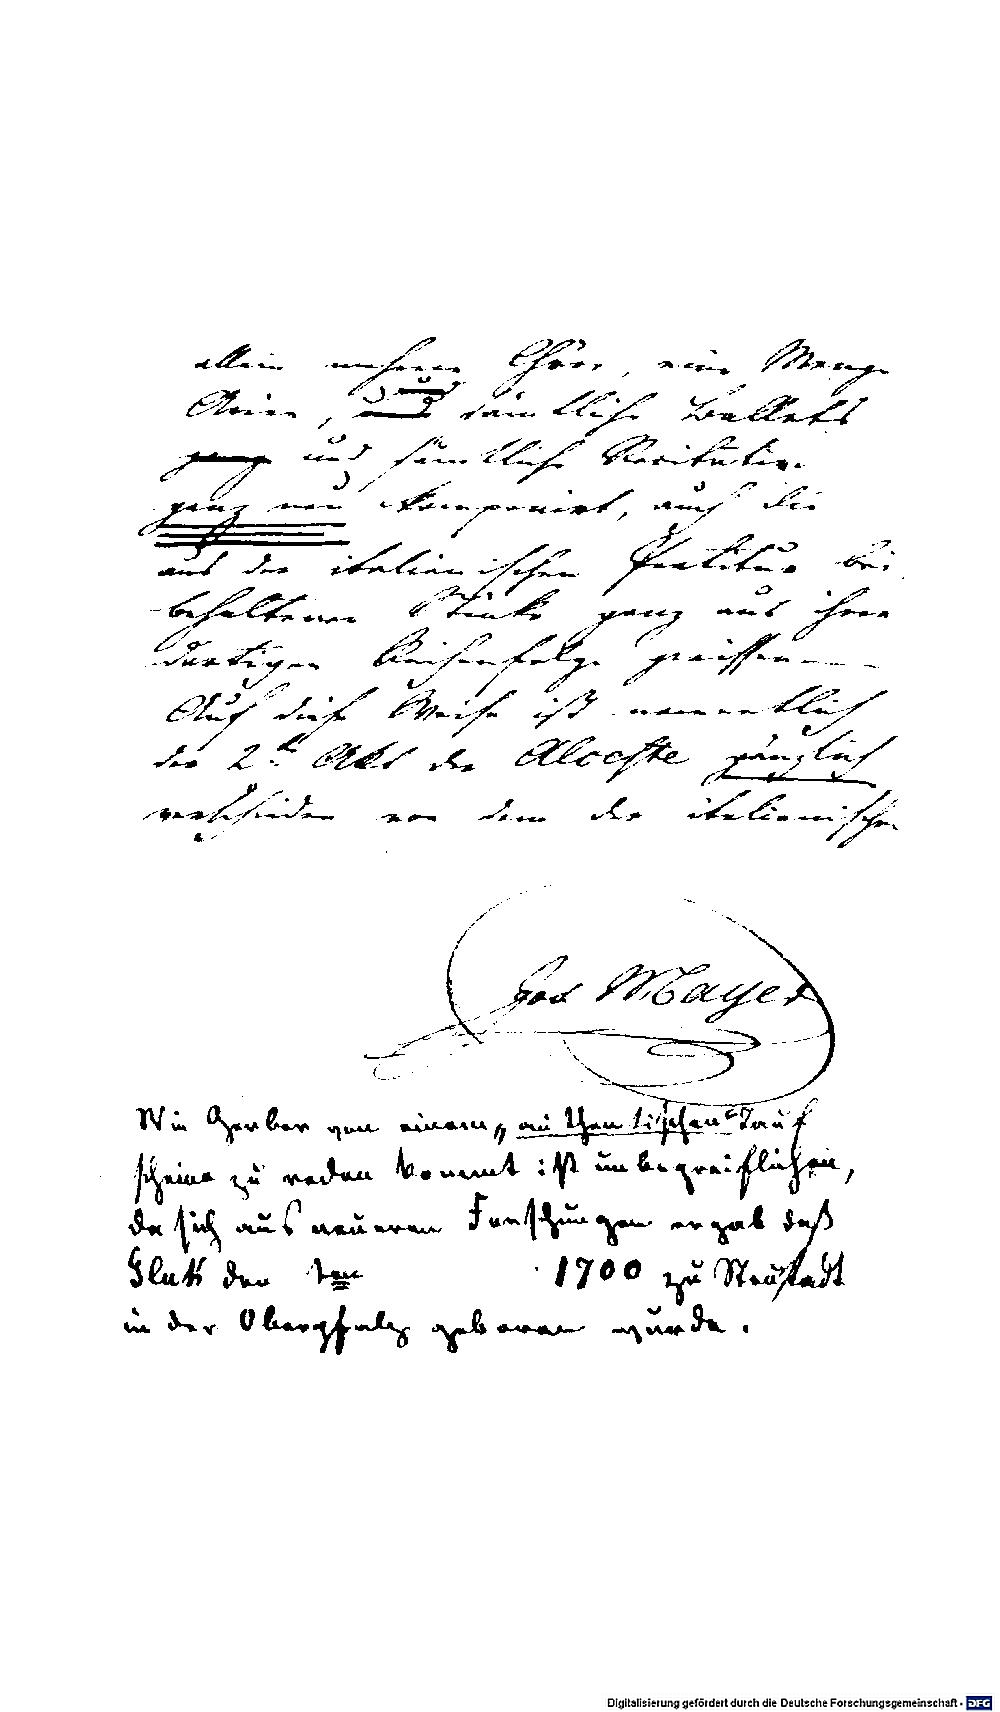 allein mehrere Chöre, eine Menge
Arien, und sämtliche Ballets
ganz und sämtliche Recitative
ganz neu komponirt, auch die
aus der italienischen Partitur bei
behaltenen Stücke ganz aus ihrer
dortigen Reihenfolge gerissen
Auf diese Weise ist namentlich
der 2te Akt der Alceste gänzlich
verschieden von dem der italienischen
Jos Mayer
Wie Gerber von einem „authentischen“ Tauf
scheine zu reden kommt ist unbegreiflich,
da sich aus neueren Forschungen ergab daß
Gluk den ten 1700 zu Neustadt
in der Oberpfalz geboren wurde.
Digitalisierung gefördert durch die Deutsche Forschungsgemeinschaft - DFG